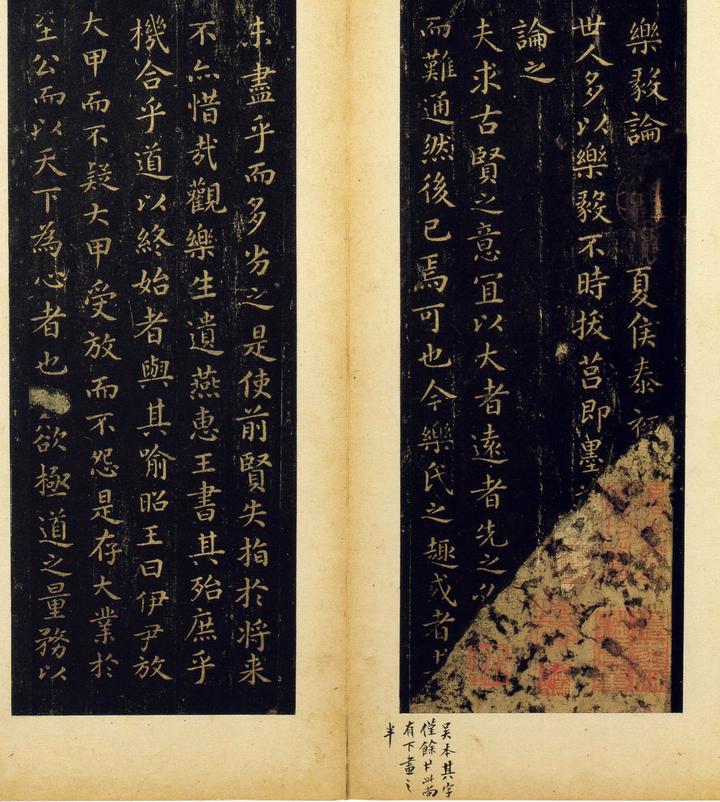 樂毅論 夏侯泰初
世人多以樂毅不時拔莒即墨
論之
夫求古賢之意宜以大者遠者先之必
而難通然後已焉可也今樂氏之趣或者
吳本其字
僅餘 此尚
有下畫之
半
未盡乎而多劣之是使前賢失指於將来
不亦惜哉觀樂生遺燕惠王書其殆庶乎
機合乎道以終始者與其喻昭王曰伊尹放
大甲而不疑大甲受放而不怨是存大業於
至公而以天下為心者也欲極道之量務以